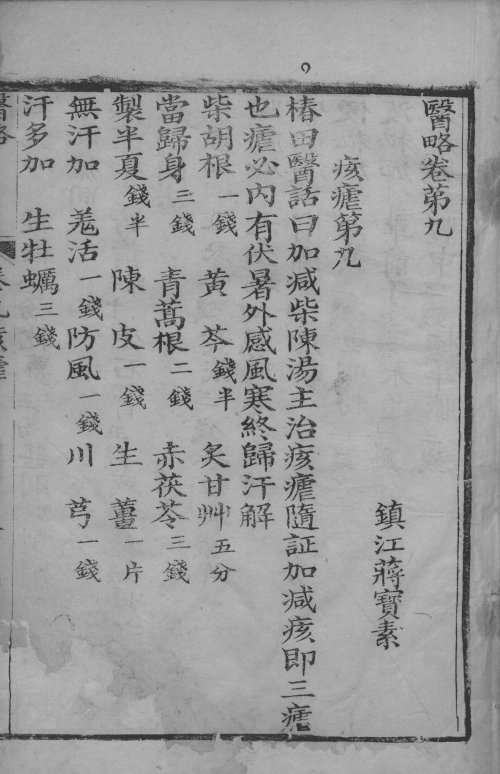 醫略卷第九
鎮江蔣寶素
痎瘧第九
椿田醫話曰加減柴陳湯主治痎瘧隨証加減痎即三瘧
也瘧必內有伏暑外感風寒終歸汗解
柴胡根一錢 黃芩錢半 炙甘艸五分
當歸身三錢 青蒿根二錢 赤茯苓三錢
製半夏錢半 陳皮一錢 生薑一片
無汗加 羌活一錢 防風一錢 川芎一錢
汗多加 生牡蠣三錢
醫略 卷九痎瘧